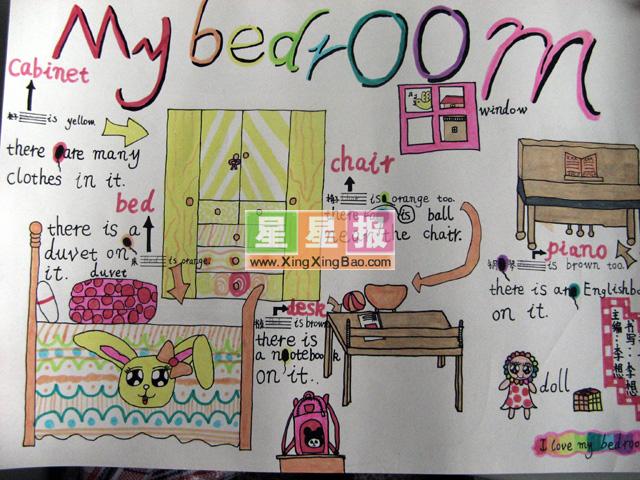 My bedrOOm
Cabinet
is yellow.
there are many
clothes in it.
bed
there is a
duvet on
it.
is orange.
duvet
window
chair
is orange too.
is ball
the chair.
星星报
www.XingXingBao.com
desk
is brown
there is
a notebook
on it.
piano
is brown too.
there is an Englishbo
on it.
书写:李想
主编:李想
doll
I love my bedroo